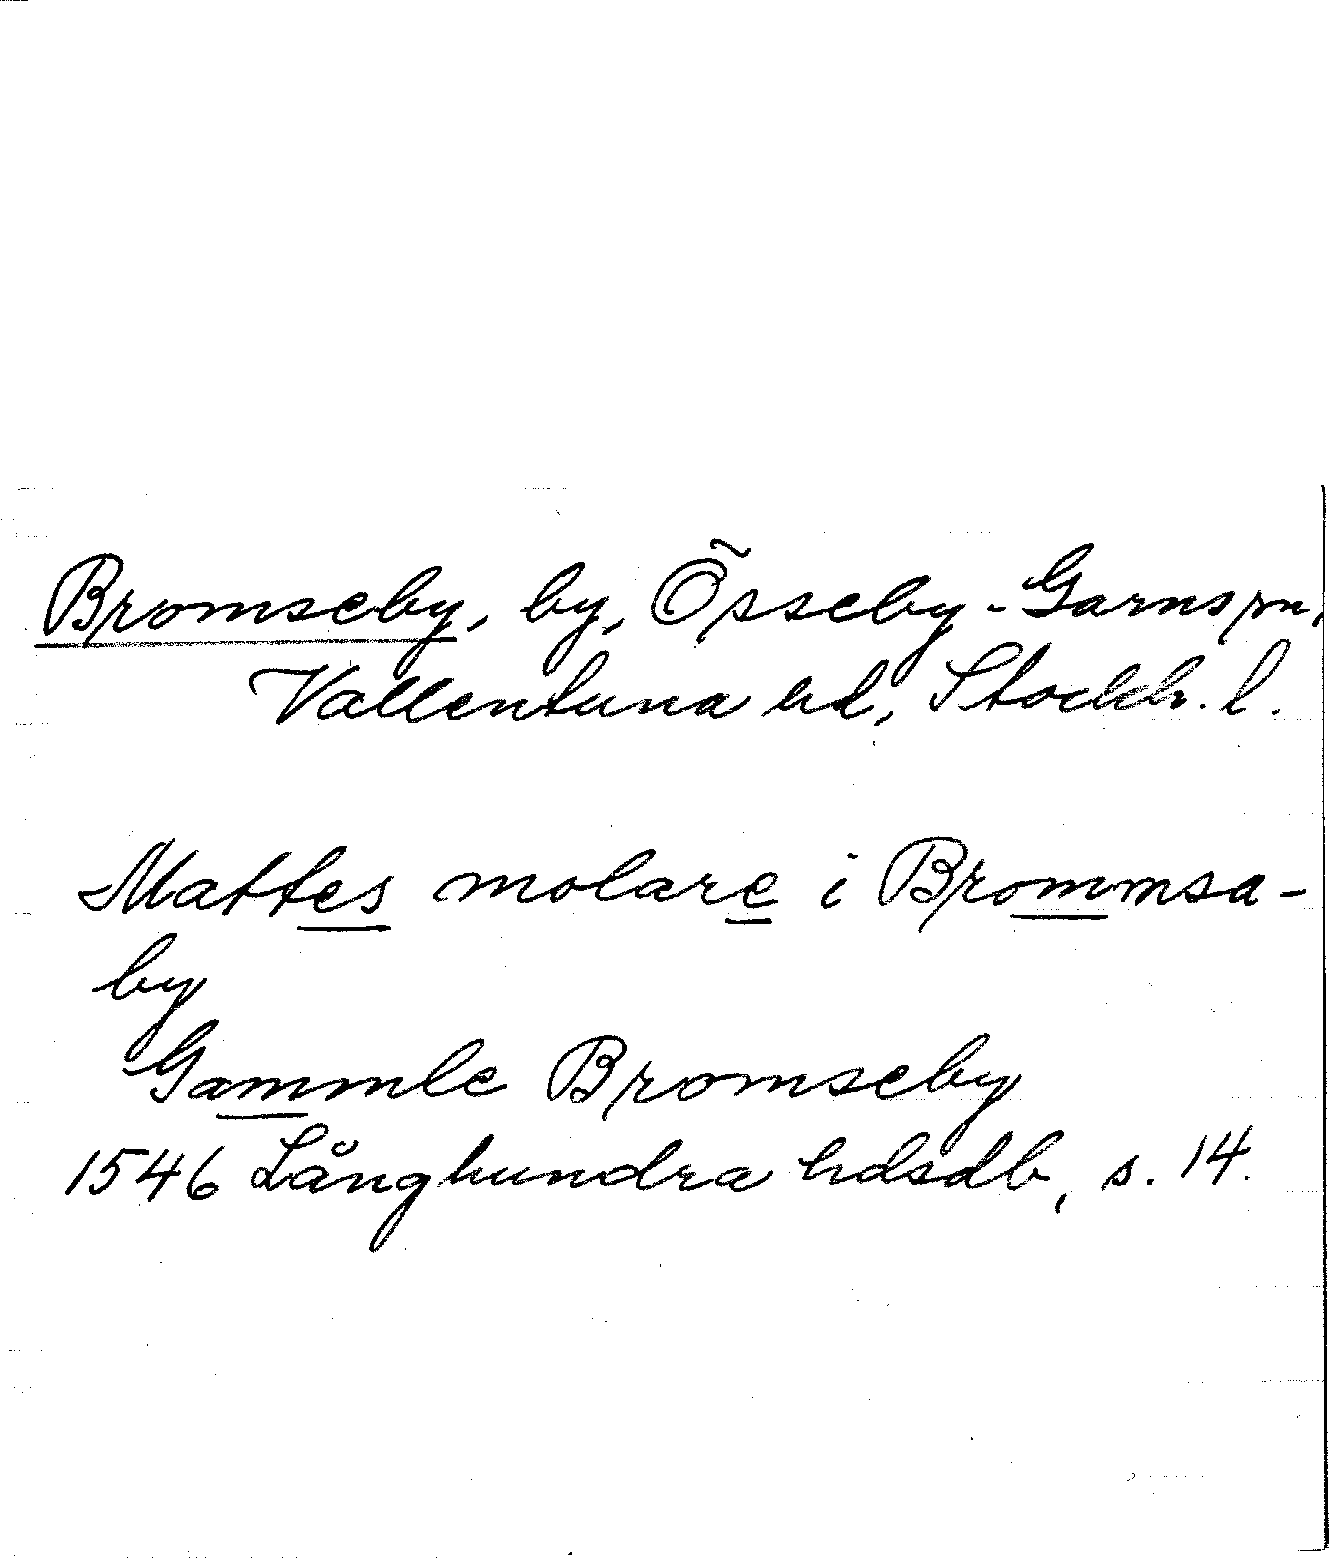 Bromseby, by, Össeby-Garns sn,
Vallentuna hd, Stockh. l.
Mattes molare i Brommsa-
by
Gammle Bromseby
1546 Långhundra hdsdb, s. 14.